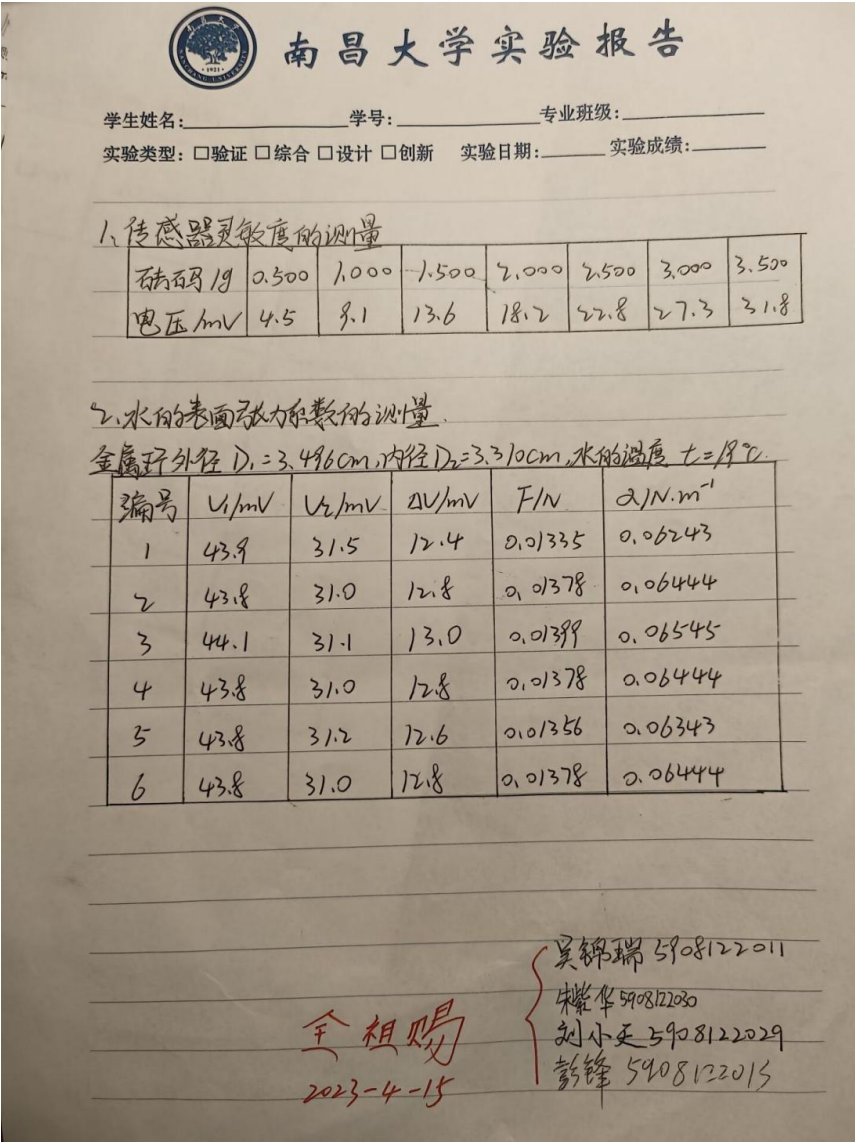 南昌大学实验报告
学生姓名: 学号: 专业班级:
实验类型: □验证 □综合 □设计 □创新 实验日期: 实验成绩:
1、传感器灵敏度的测量
砝码/g 0.500 1.000 1.500 2.000 2.500 3.000 3.500
电压/mV 4.5 9.1 13.6 18.2 22.8 27.3 31.8
2、水的表面张力系数的测量.
金属环外径D₁=3.496cm,内径D₂=3.310cm,水的温度 t=19℃.
编号 V₁/mV V₂/mV ΔV/mV F/N α/N·m⁻¹
1 43.9 31.5 12.4 0.01335 0.06243
2 43.8 31.0 12.8 0.01378 0.06444
3 44.1 31.1 13.0 0.01399 0.06545
4 43.8 31.0 12.8 0.01378 0.06444
5 43.8 31.2 12.6 0.01356 0.06343
6 43.8 31.0 12.8 0.01378 0.06444
吴锦瑞 5908122011
朱紫华 5908122030
刘小天 5908122029
彭锋 5908122015
全祖赐
2023-4-15